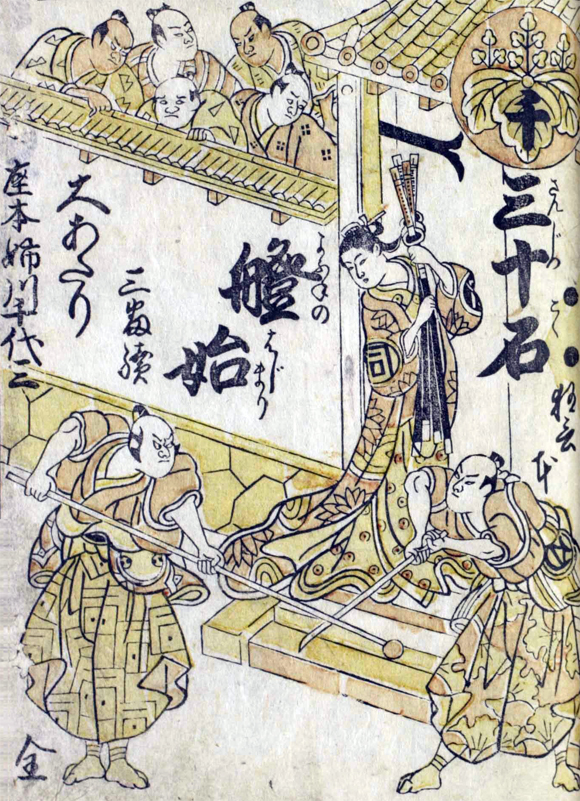 千
三十石
さんじつこく
艠始
よふねの
はじまり
狂言
大あたり
三番續
座本姉川千代三
全